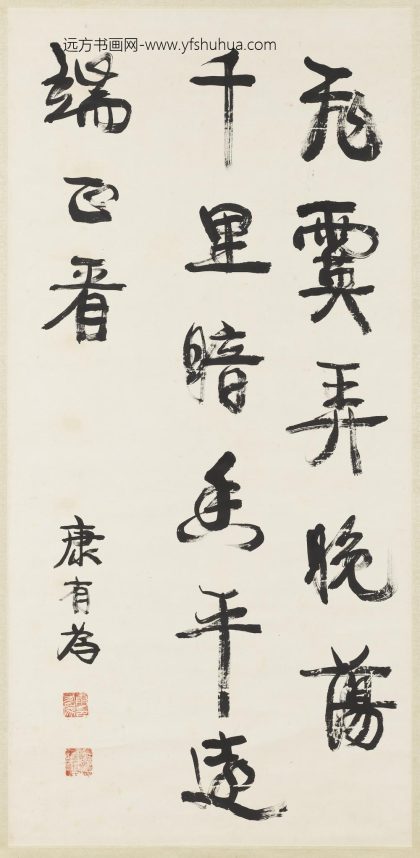 远方书画网-www.yfshuhua.com
飛霙弄晚蕩
千里暗香平遠
端正看
康有為